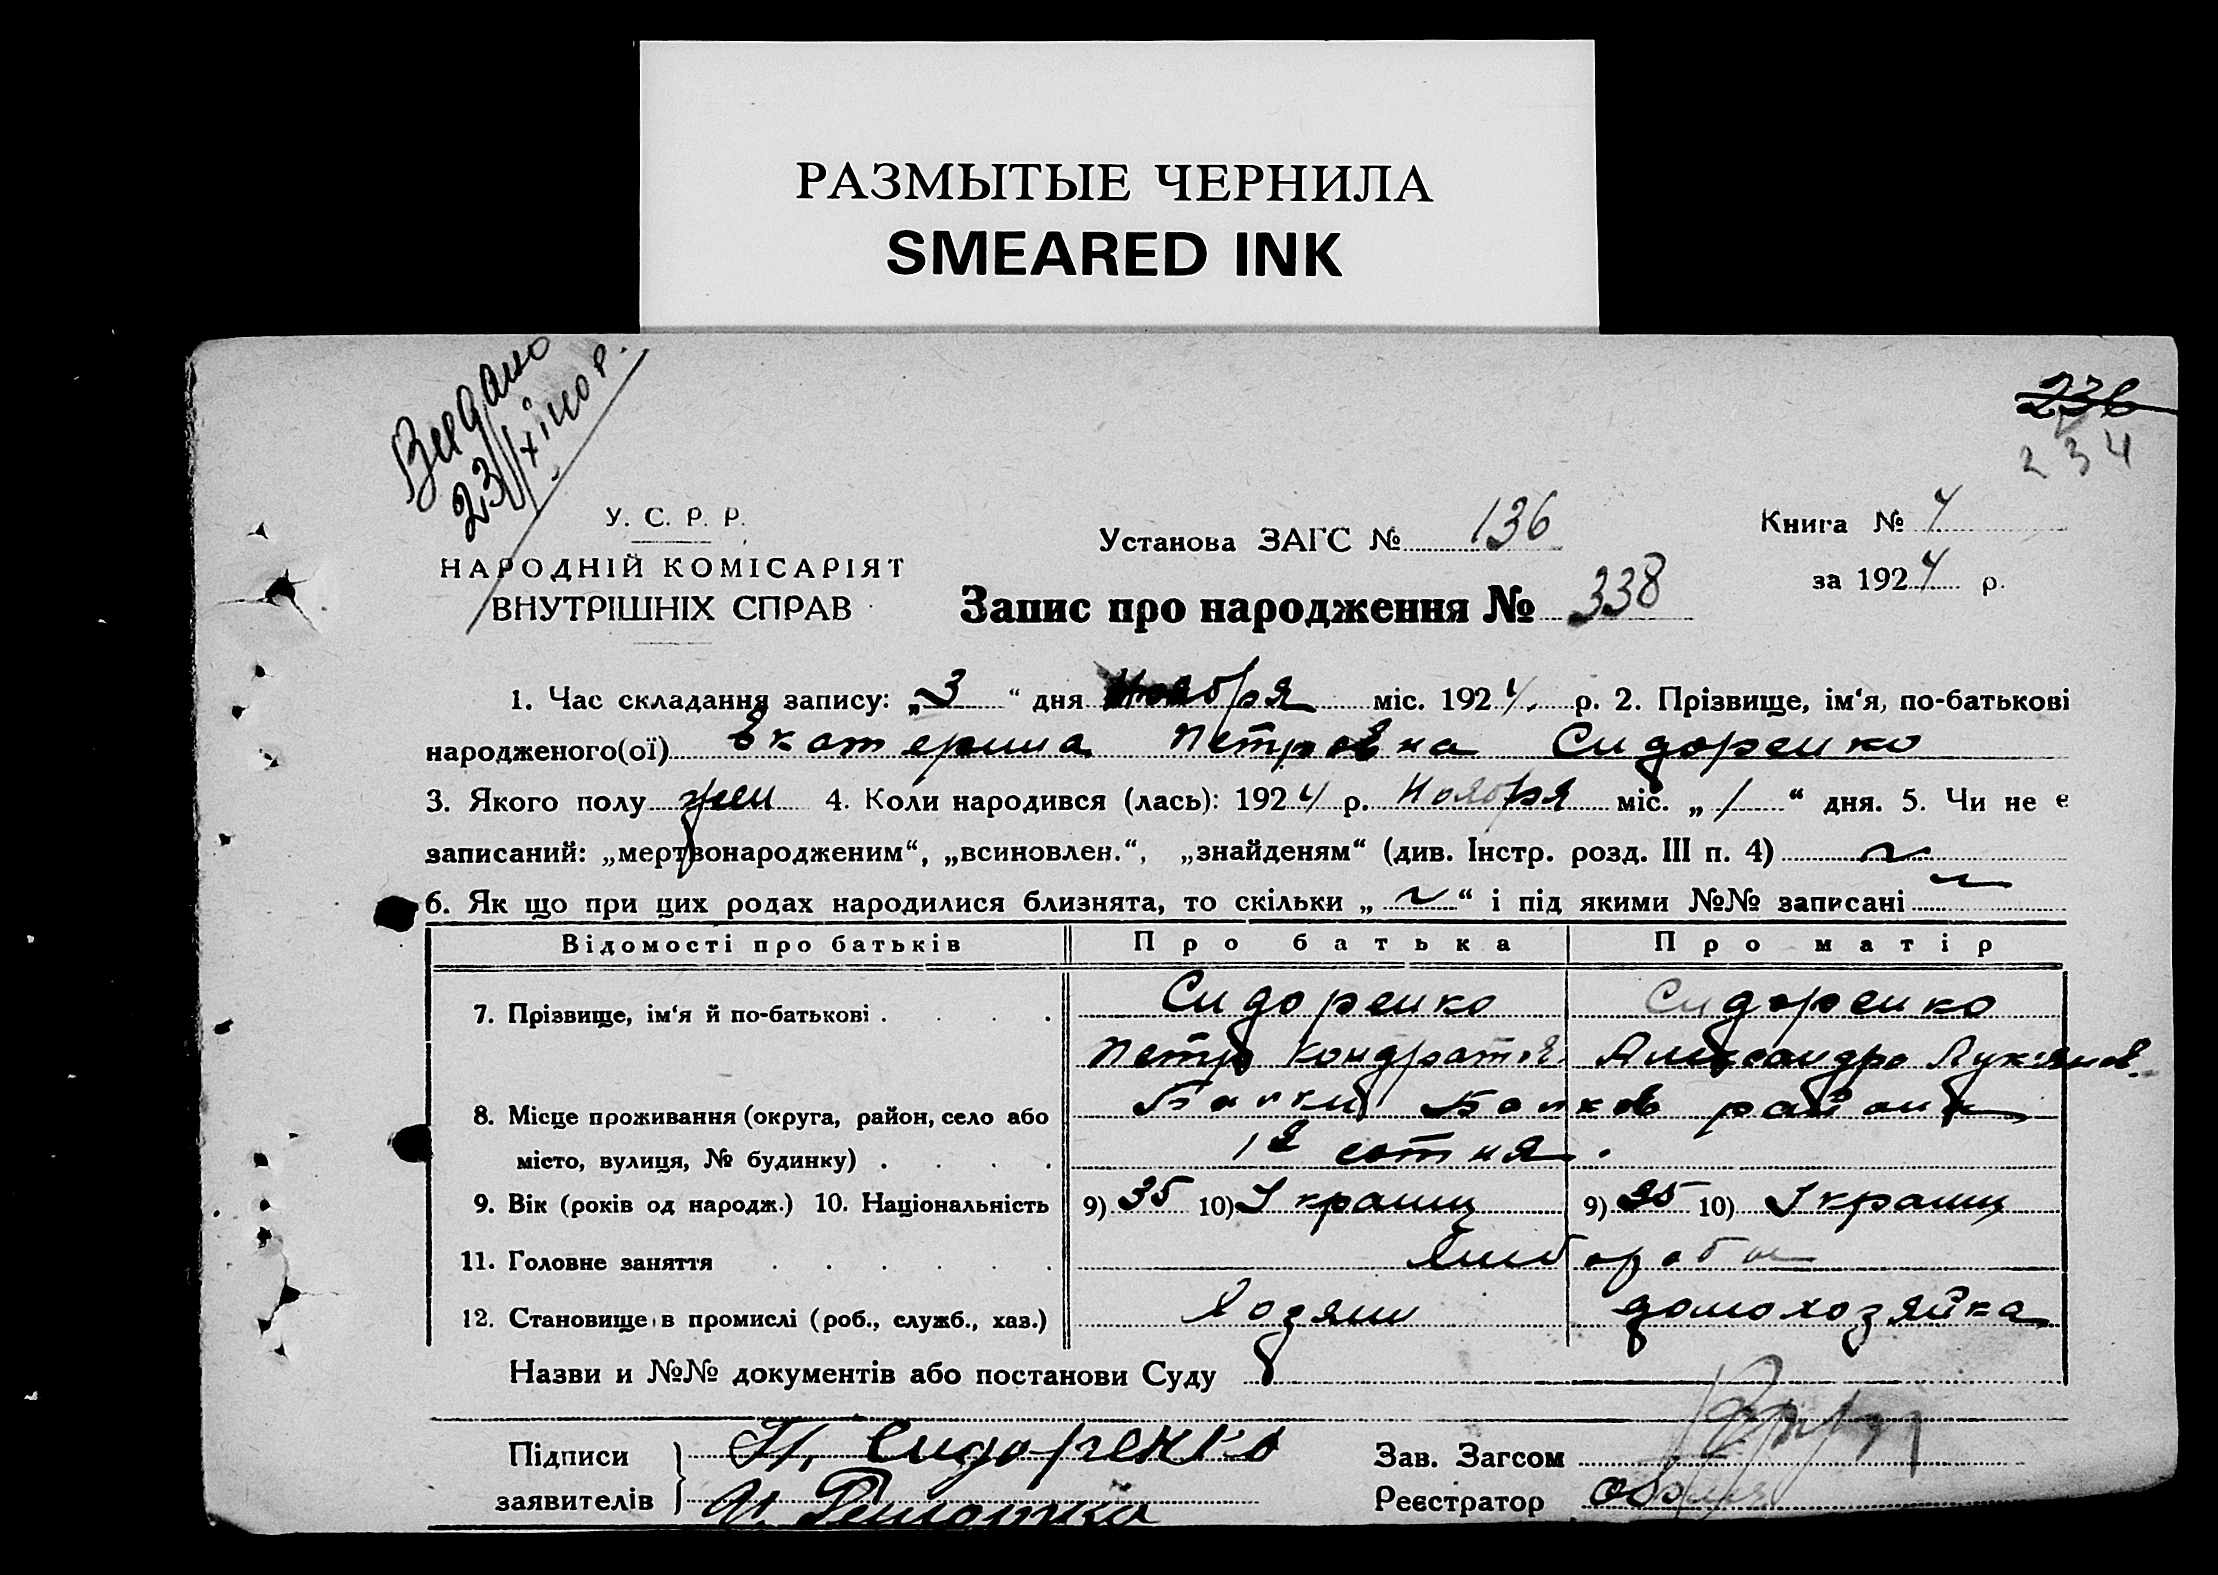 РАЗМЫТЫЕ ЧЕРНИЛА
SMEARED INK
236
234
У. С. Р. Р.
НАРОДНІЙ КОМІСАРІЯТ
ВНУТРІШНІХ СПРАВ
Установа ЗАГС № 136
Книга № 4
за 1924 р.
Запис про народження № 338
1. Час складання запису: „3“ дня Ноября міс. 1924 р. 2. Прізвище, ім‘я, по-батькові
народженого(ої) Екатерина Петровна Сидоренко
3. Якого полу жен 4. Коли народився (лась): 1924 р. Ноября міс. „1“ дня. 5. Чи не є
записаний: „мертвонародженим“, „всиновлен.“, „знайденям“ (див. Інстр. розд. III п. 4) ~
6. Як що при цих родах народилися близнята, то скільки „~“ і під якими №№ записані ~
Відомості про батьків Про батька Про матір
7. Прізвище, ім‘я й по-батькові Сидоренко Сидоренко
Петр Кондратов. Александра Лукянов.
8. Місце проживання (округа, район, село або район
місто, вулиця, № будинку) 1я сотня.
9. Вік (років од народж.) 10. Національність 9) 35 10) Украинц 9) 35 10) Украинц
11. Головне заняття
12. Становище в промислі (роб., служб., хаз.) Хозяин домохозяйка
Назви и №№ документів або постанови Суду
Підписи П. Сидоренко Зав. Загсом
заявителів Реєстратор